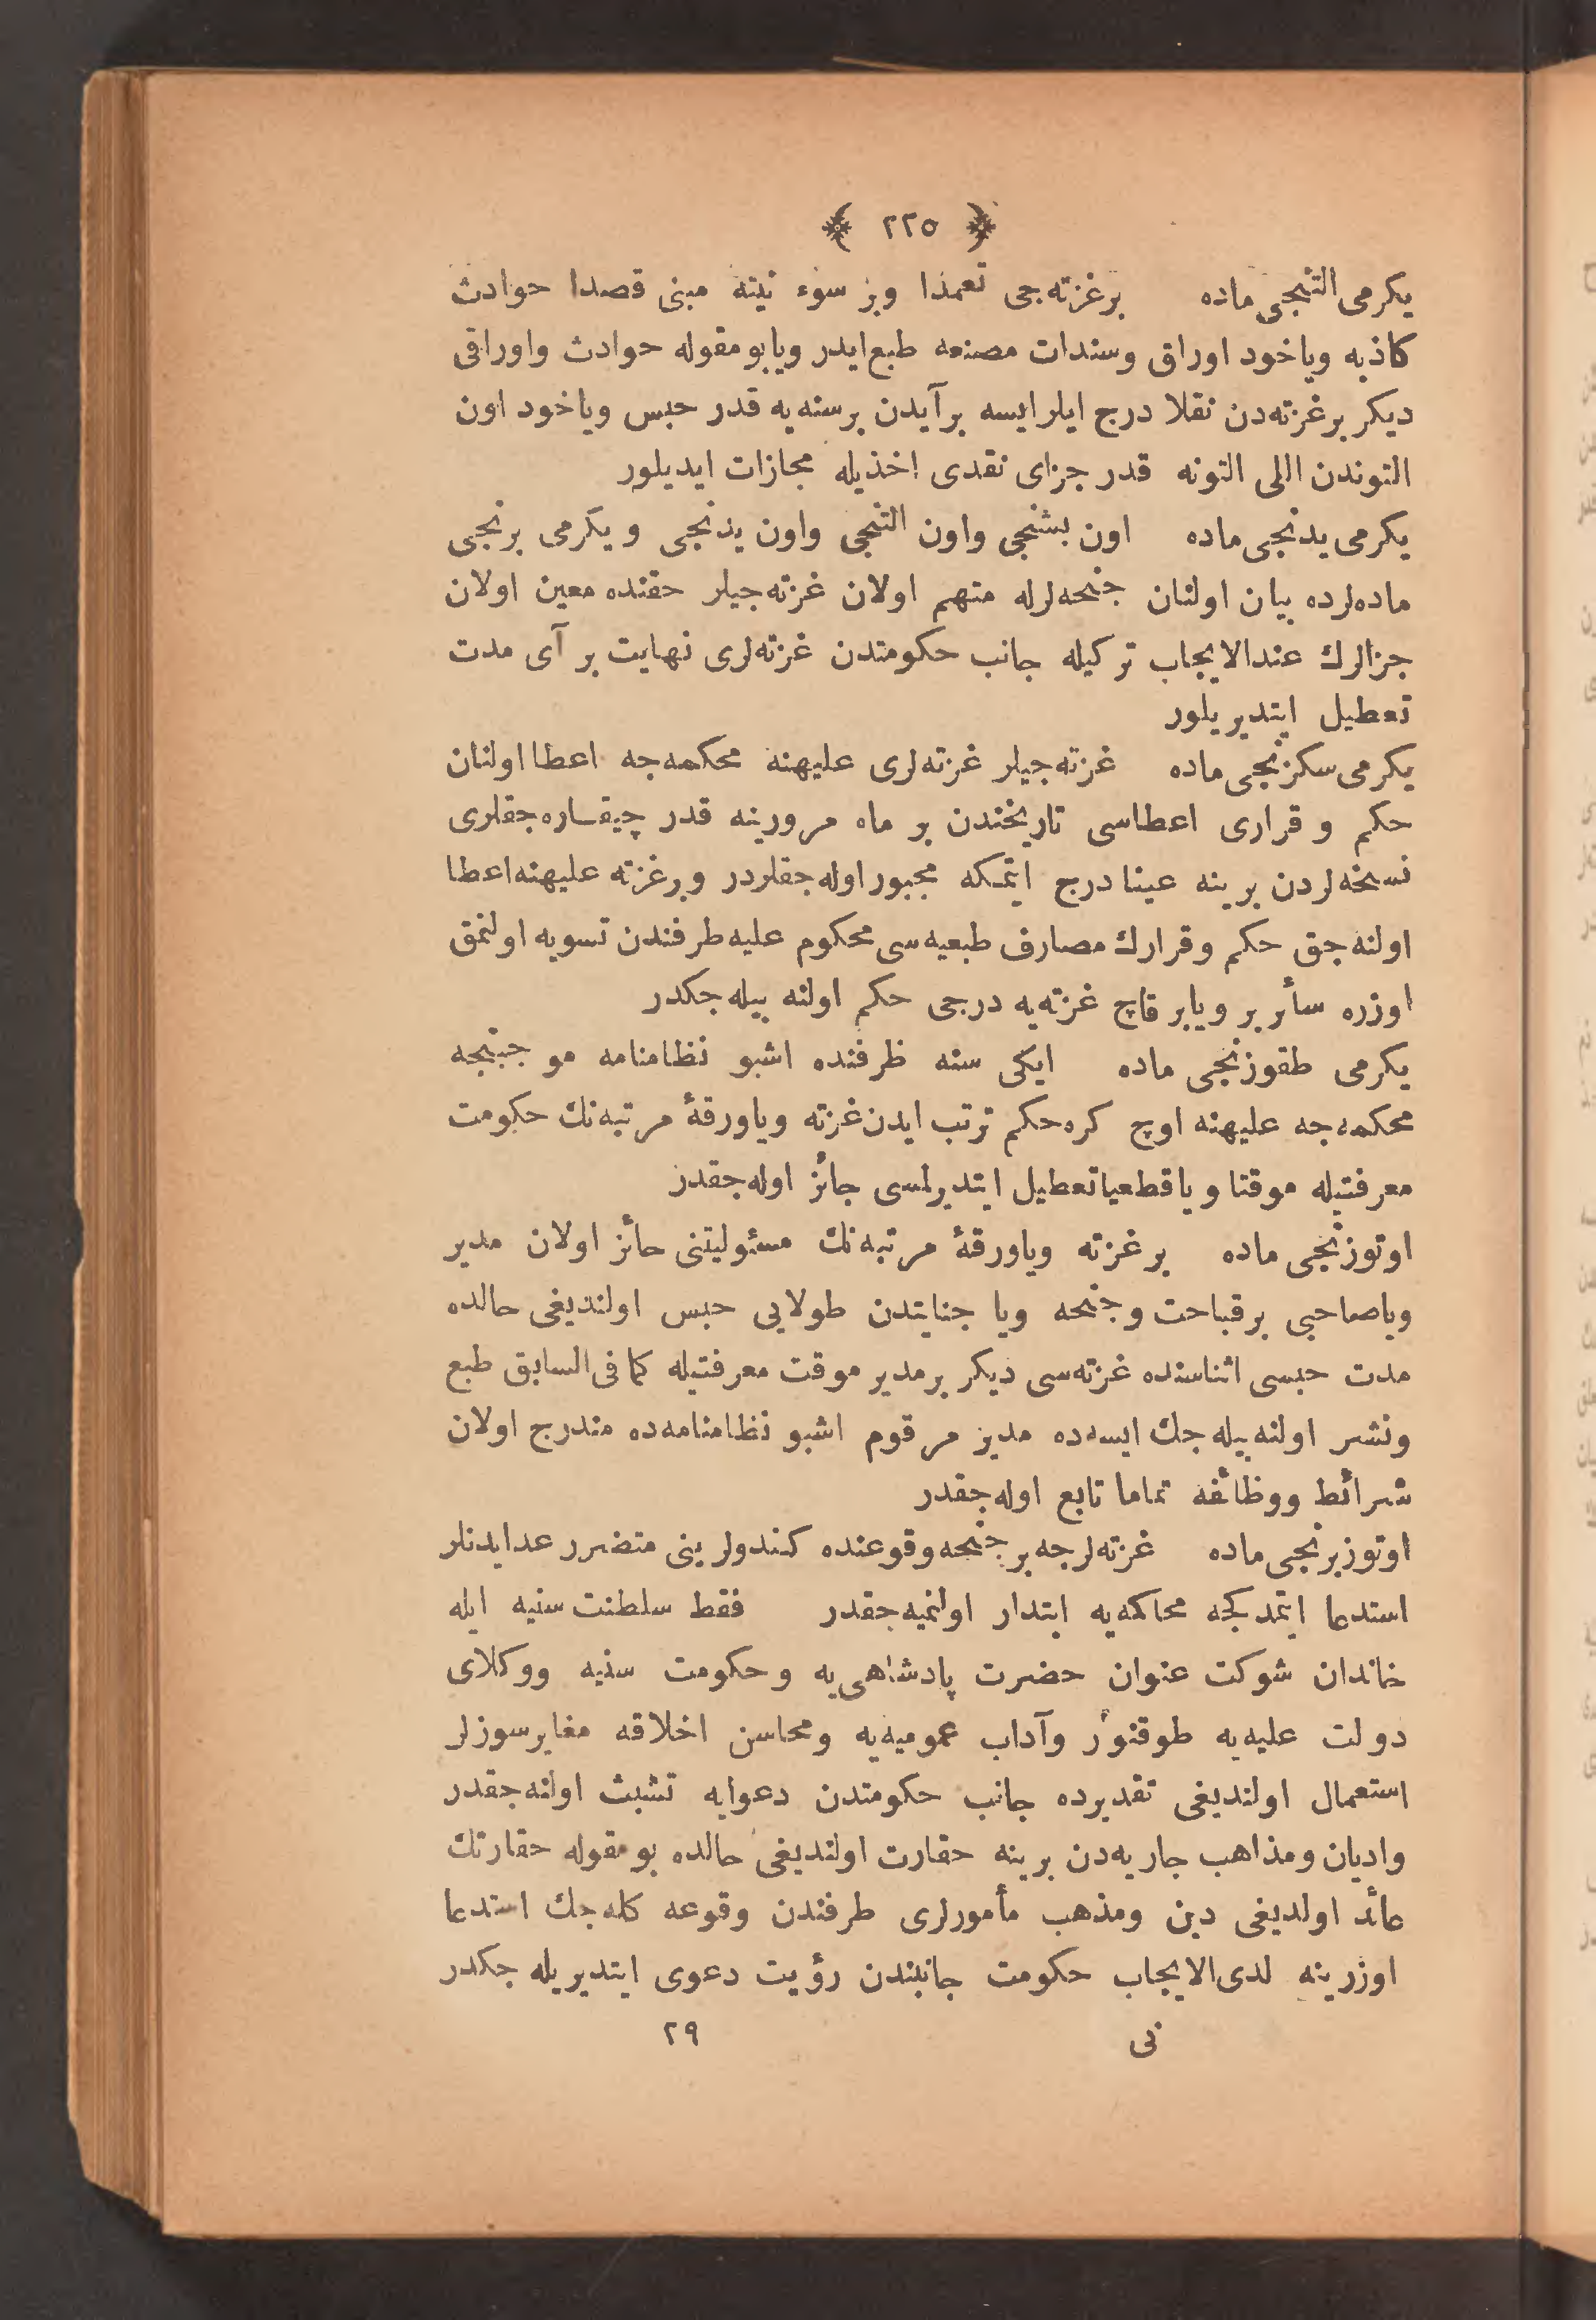 ﴿ ٢٢٥ ﴾
یکرمی التنجی ماده برغزته‌جی تعمدا وبر سوء نیته مبنی قصدا حوادث
کاذبه ویاخود اوراق وسندات مصنعه طبع‌ایدر ویابومقوله حوادث واوراقی
دیکر برغزته‌دن نقلا درج ایلرایسه برآیدن برسنه‌یه قدر حبس ویاخود اون
التوندن اللی التونه قدر جزای نقدی اخذیله مجازات ایدیلور
یکرمی یدنجی ماده اون بشنجی واون التنجی واون یدنجی ویکرمی برنجی
ماده‌لرده بیان اولنان جنحه‌لرله متهم اولان غزته‌جیلر حقنده معین اولان
جزالرك عندالایجاب ترکیله جانب حکومتدن غزته‌لری نهایت بر آی مدت
تعطیل ایتدیریلور
یکرمی سکزنجی ماده غزته‌جیلر غزته‌لری علیهنه محکمه‌جه اعطا اولنان
حکم و قراری اعطاسی تاریخندن بر ماه مرورینه قدر چیقاره‌جقلری
نسخه‌لردن برینه عینا درج ایتمکه مجبور اوله‌جقلردر وبرغزته علیهنه‌اعطا
اولنه‌جق حکم وقرارك مصارف طبعیه‌سی محکوم علیه طرفندن تسویه اولنمق
اوزره سائر بر ویابر قاچ غزته‌یه درجی حکم اولنه بیله‌جکدر
یکرمی طقوزنجی ماده ایکی سنه ظرفنده اشبو نظامنامه موجبنجه
محکمه‌جه علیهنه اوچ کره‌حکم ترتب ایدن‌غزته ویاورقهٔ مرتبه‌نك حکومت
معرفتیله موقتا ویاقطعیاتعطیل ایتدیرلمسی جائز اوله‌جقدر
اوتوزنجی ماده برغزته ویاورقهٔ مرتبه‌نك مسئولیتنی حائز اولان مدیر
ویاصاحبی برقباحت وجنحه ویا جنایتدن طولایی حبس اولندیغی حالده
مدت حبسی اثناسنده غزته‌سی دیکر برمدیر موقت معرفتیله کمافی‌السابق طبع
ونشر اولنه‌بیله‌جك ایسه‌ده مدیر مرقوم اشبو نظامنامه‌ده مندرج اولان
شرائط ووظائفه تماما تابع اوله‌جقدر
اوتوزبرنجی ماده غزته‌لرجه برجنحه وقوعنده کندولرینی متضرر عدایدنلر
استدعا ایتمدکجه محاکمه‌یه ابتدار اولنمیه‌جقدر فقط سلطنت سنیه ایله
خاندان شوکت عنوان حضرت پادشاهی‌یه وحکومت سنیه ووکلای
دولت علیه‌یه طوقنور وآداب عمومیه‌یه ومحاسن اخلاقه مغایرسوزلر
استعمال اولندیغی تقدیرده جانب حکومتدن دعوایه تشبث اولنه‌جقدر
وادیان ومذاهب جاریه‌دن برینه حقارت اولندیغی حالده بومقوله حقارتك
عائد اولدیغی دین ومذهب مأمورلری طرفندن وقوعه کله‌جك استدعا
اوزرینه لدی‌الایجاب حکومت جانبندن رؤیت دعوی ایتدیریله‌جکدر
نی ٢٩